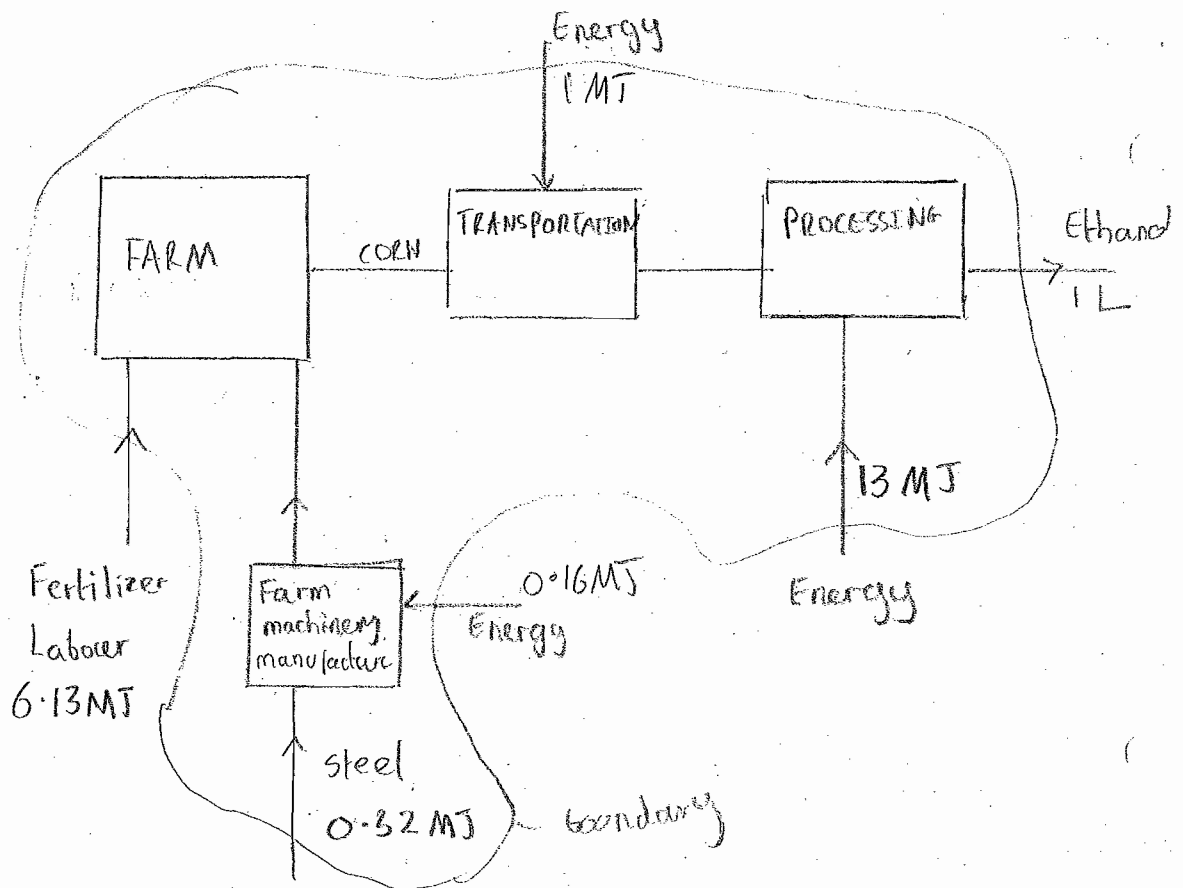 Energy
1 MJ
FARM
CORN
TRANSPORTATION
PROCESSING
Ethanol
1 L
13 MJ
Energy
Fertilizer
Labour
6.13MJ
Farm
machinery
manufacture
0.16MJ
Energy
steel
0.32 MJ
boundary